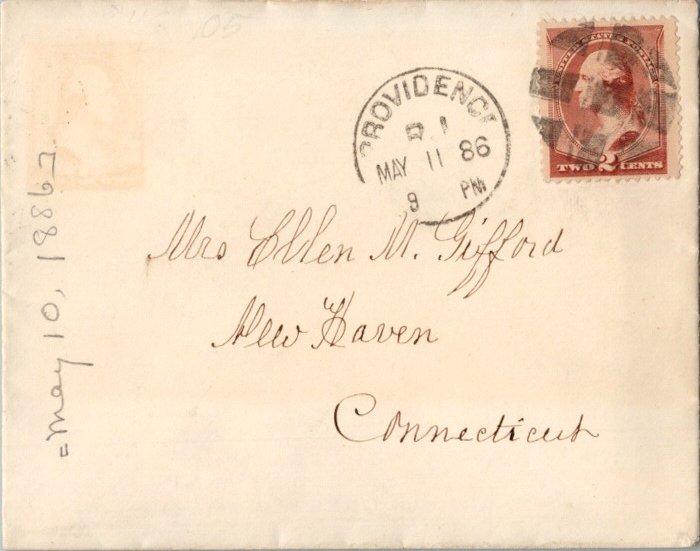 PROVIDENCE
R I
MAY 11 86
9 PM
UNITED STATES POSTAGE
TWO 2 CENTS
Mrs Ellen M. Gifford
New Haven
Connecticut
=May 10, 1886=
05